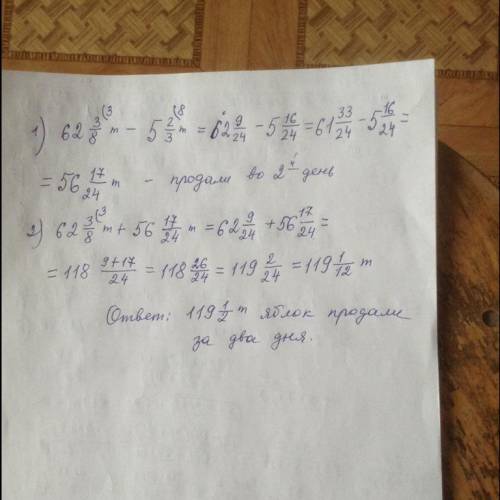 1) 62 3/8 (3 т − 5 2/3 (8 т = 62 9/24 − 5 16/24 = 61 33/24 − 5 16/24 =
= 56 17/24 т − продали во 2й день
2) 62 3/8 (3 т + 56 17/24 т = 62 9/24 + 56 17/24 =
= 118 9+17/24 = 118 26/24 = 119 2/24 = 119 1/12 т
Ответ: 119 1/2 т яблок продали
за два дня.